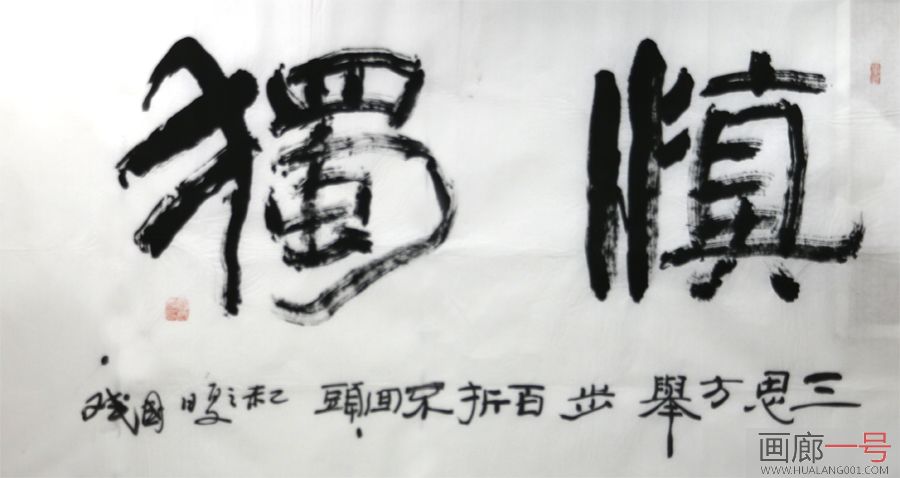 慎獨
三思方舉步百折不回頭乙未之夏日國
画廊一号
WWW.HUALANG001.COM